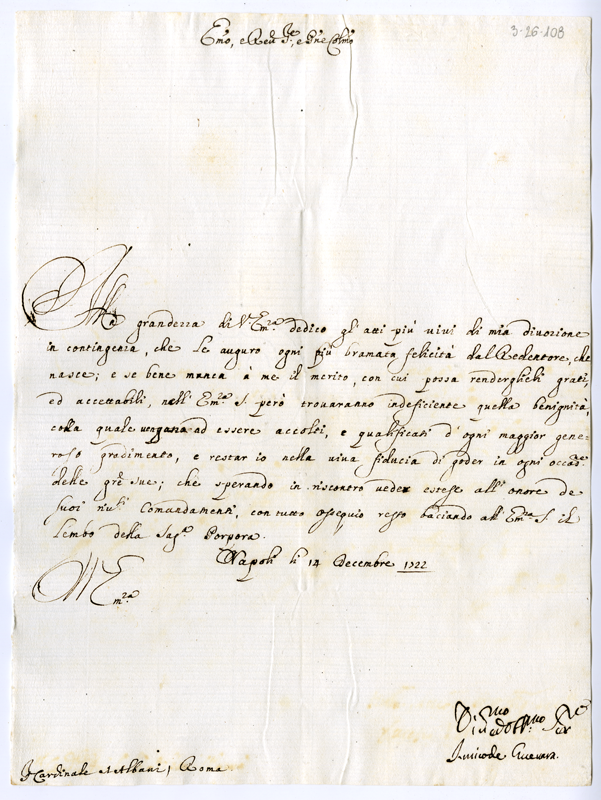 3-26-108
Emo, e Red Sre, e Pne Colmo
Alla grandezza di V. Emza dedico gl' atti più vivi di mia divozione
in contingenza, che le auguro ogni più bramata felicità dal Redentore, che
nasce; e se bene manca à me il merito, con cui possa renderglieli grati,
ed accettabili, nell' Emza S. però trovaranno indeficiente quella benignità,
colla quale vengana ad essere accolti, e qualificati d' ogni maggior gene-
roso gradimento, e restar io nella viva fiducia di goder in ogni occaone
delle gre sue; che sperando in riscontro veder estese all' onore de
suoi riuti Comandamenti, con tutto ossequio resto baciando all' Emza S. il
Lembo della Saga Porpora.
Napoli li 14 Decembre 1722
V Emza
Dimo
Inico de Guevara
Cardinale Albani, Roma